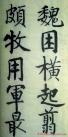 魏困橫起翦
頗牧用軍最